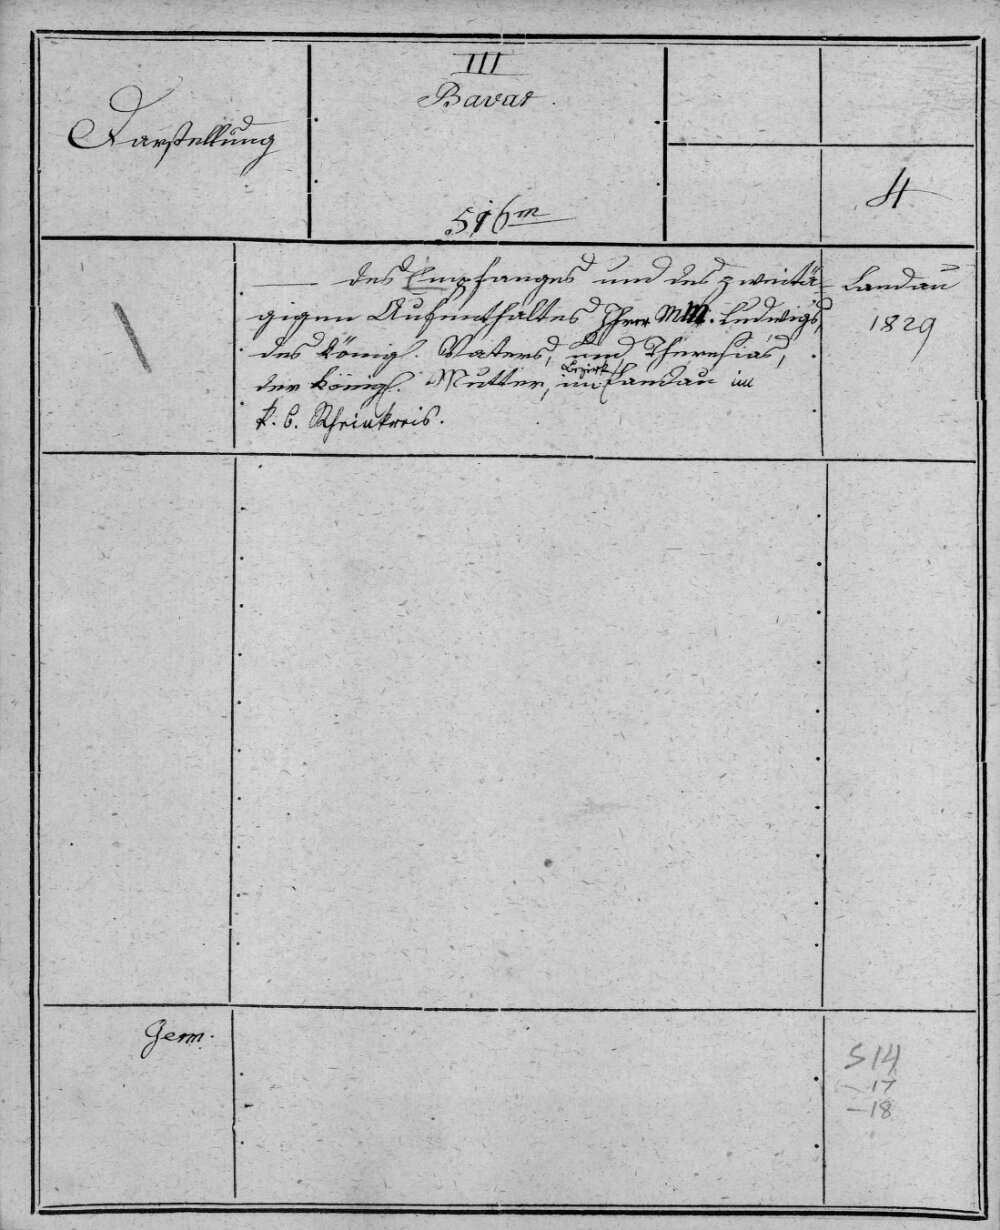 Darstellung
III
Bavar.
516m
4
— des Empfanges und des zweitä-
gigen Aufenthaltes Ihrer MM. Ludwigs,
des Königl. Vaters, und Theresias,
der Königl. Mutter, im Bezirk Landau im
k. b. Rheinkreis.
Landau
1829
Germ.
S 14
– 17
– 18